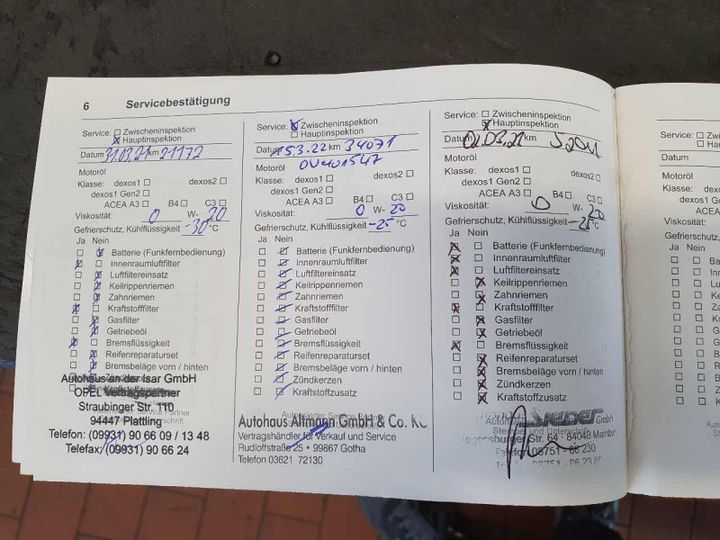 6 Servicebestätigung
Service: Zwischeninspektion
Hauptinspektion
Datum 31.03.21 km 21172
Motoröl
Klasse: dexos1 dexos2
dexos1 Gen2
ACEA A3 B4 C3
Viskosität: 0 W- 20
Gefrierschutz, Kühlflüssigkeit -30 °C
Ja Nein
Batterie (Funkfernbedienung)
Innenraumluftfilter
Luftfiltereinsatz
Keilrippenriemen
Zahnriemen
Kraftstofffilter
Gasfilter
Getriebeöl
Bremsflüssigkeit
Reifenreparaturset
Bremsbeläge vorn / hinten
Zündkerzen
Kraftstoffzusatz
Autohaus an der Isar GmbH
OPEL Vertragspartner
Straubinger Str. 110
94447 Plattling
Telefon: (09931) 90 66 09 / 13 48
Telefax: (09931) 90 66 24
Service: Zwischeninspektion
Hauptinspektion
Datum 53.22 km 34071
OV401547
Motoröl
Klasse: dexos1 dexos2
dexos1 Gen2
ACEA A3 B4 C3
Viskosität: 0 W- 20
Gefrierschutz, Kühlflüssigkeit -25 °C
Ja Nein
Batterie (Funkfernbedienung)
Innenraumluftfilter
Luftfiltereinsatz
Keilrippenriemen
Zahnriemen
Kraftstofffilter
Gasfilter
Getriebeöl
Bremsflüssigkeit
Reifenreparaturset
Bremsbeläge vorn / hinten
Zündkerzen
Kraftstoffzusatz
Autohaus Altmann GmbH & Co. KG
Vertragshändler für Verkauf und Service
Rudloffstraße 25 • 99867 Gotha
Telefon 03621 72130
Service: Zwischeninspektion
Hauptinspektion
Datum km
Motoröl
Klasse: dexos1 dexos2
dexos1 Gen2
ACEA A3 B4 C3
Viskosität: 0 W- 20
Gefrierschutz, Kühlflüssigkeit °C
Ja Nein
Batterie (Funkfernbedienung)
Innenraumluftfilter
Luftfiltereinsatz
Keilrippenriemen
Zahnriemen
Kraftstofffilter
Gasfilter
Getriebeöl
Bremsflüssigkeit
Reifenreparaturset
Bremsbeläge vorn / hinten
Zündkerzen
Kraftstoffzusatz
GmbH
Str. 64 - 84048
Telefon 08751
Service:
Datum
Motoröl
Klasse:
Viskosität:
Gefrierschutz,
Ja Nein